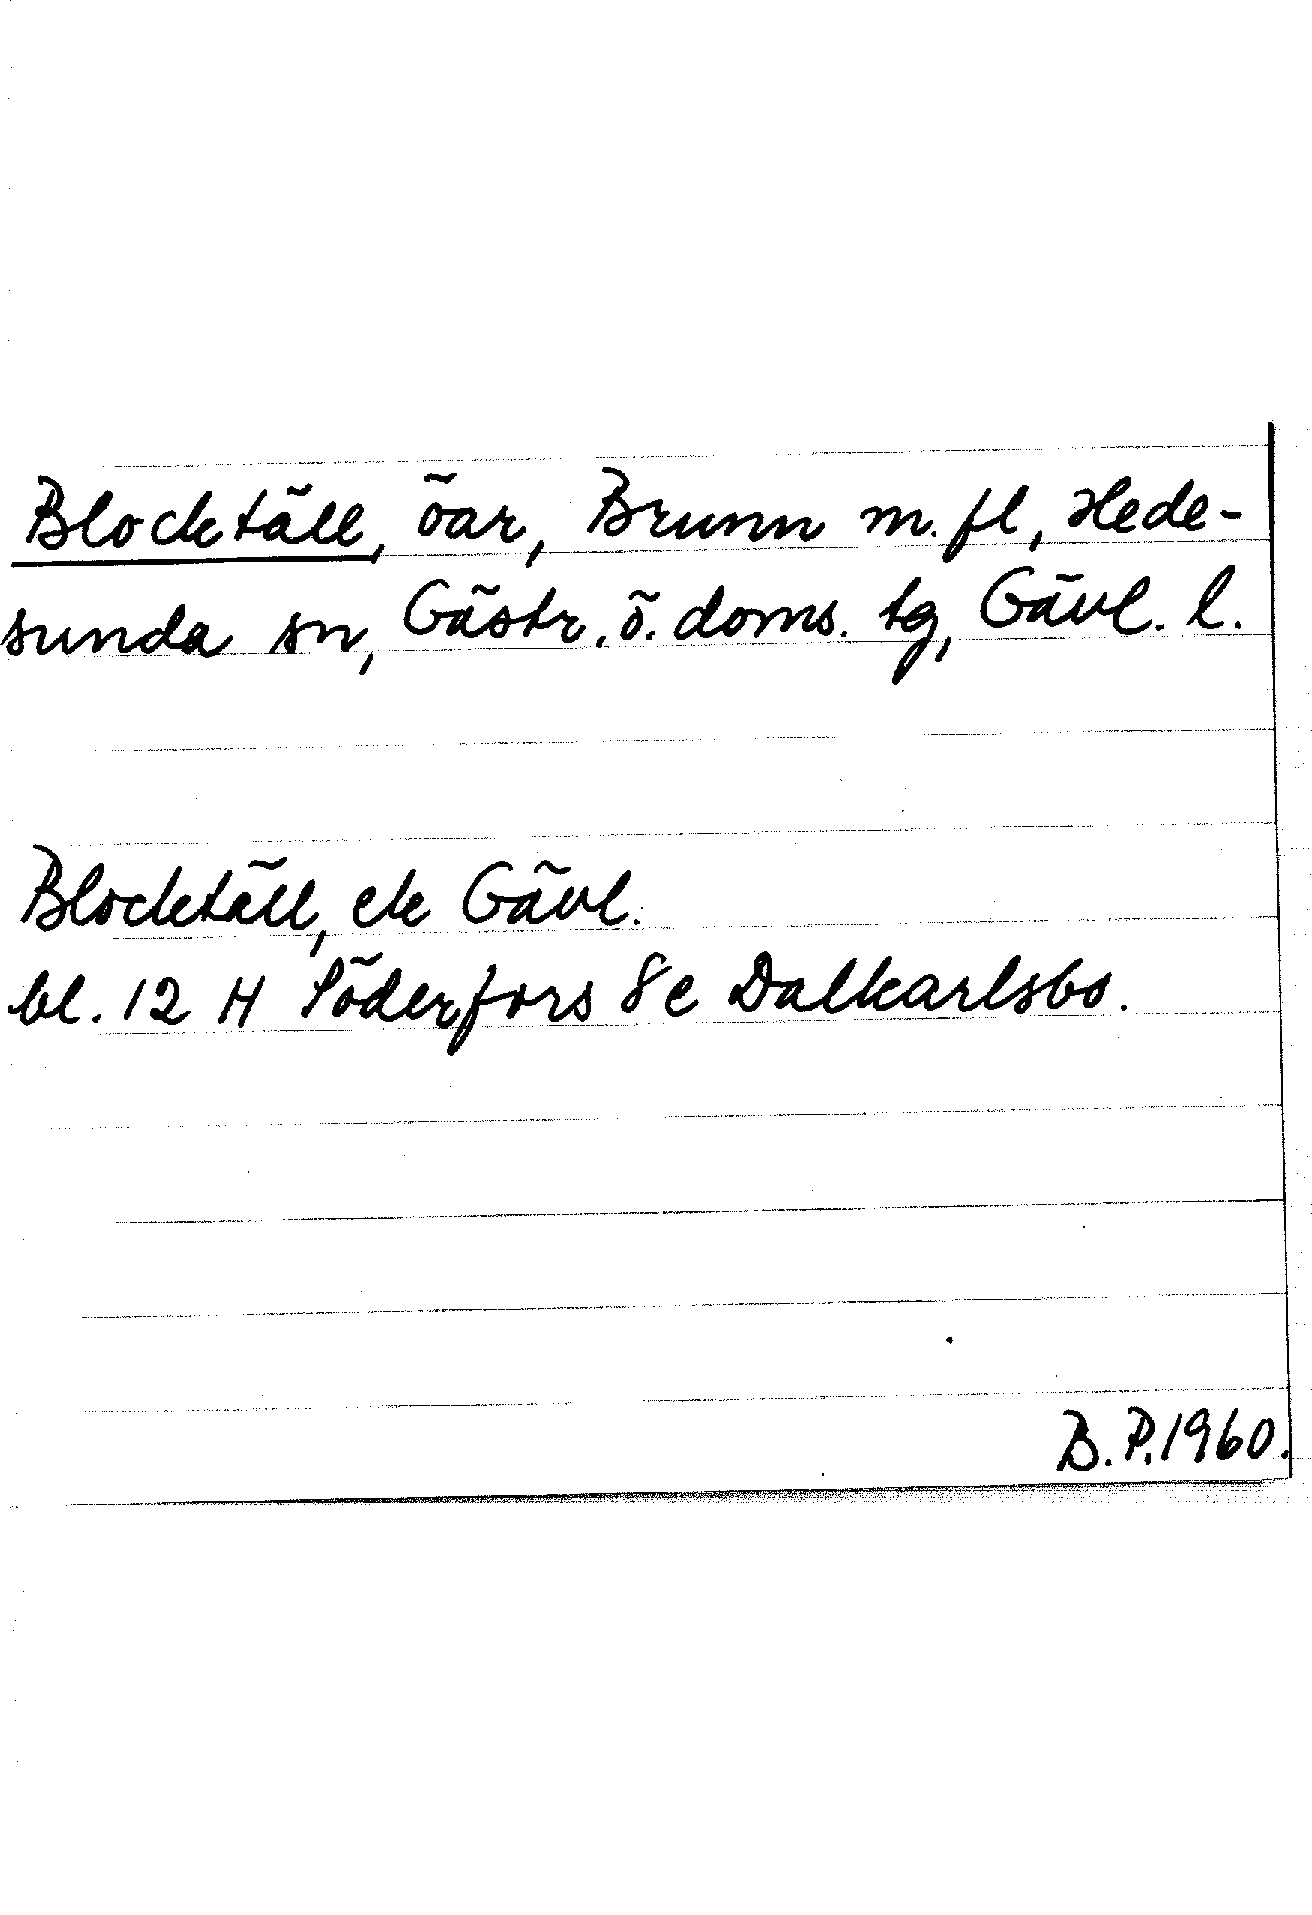 Blocktäll, öar, Brunn m. fl, Hede-
sunda sn, Gästr. ö. doms. tg, Gävl. l.
Blocktäll, ek Gävl.
bl. 12 H Söderfors 8 e Dalkarlsbo.
B.P. 1960.